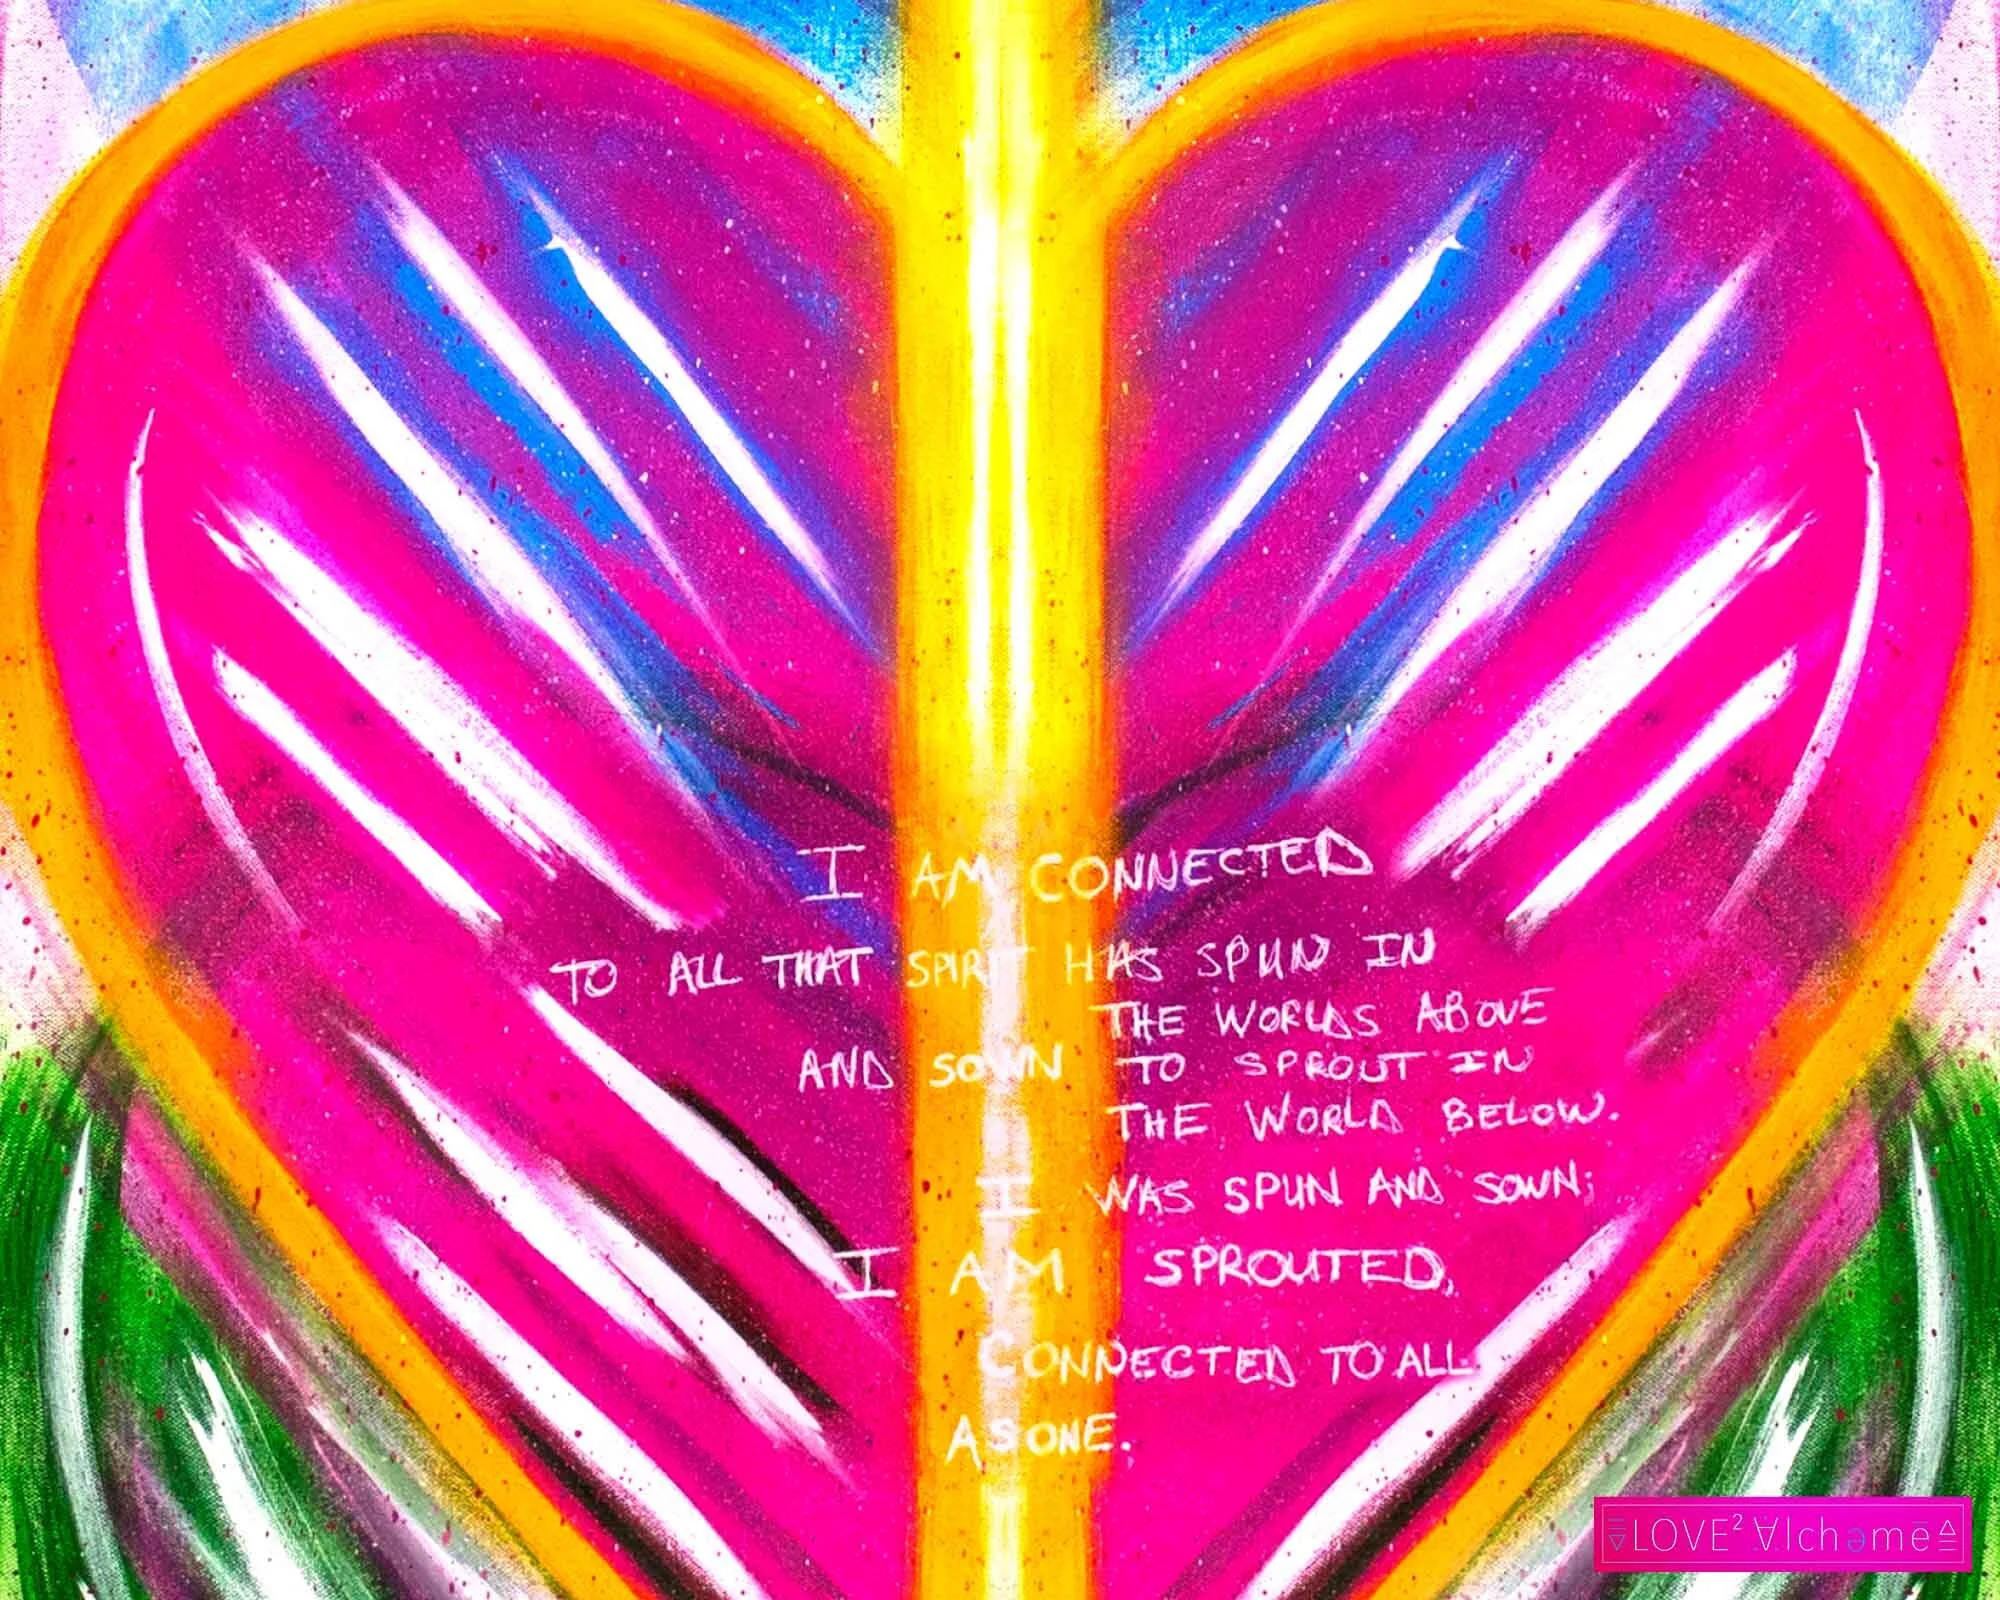 I AM CONNECTED
TO ALL THAT SPIRIT HAS SPUN IN
THE WORLDS ABOVE
AND SOWN TO SPROUT IN
THE WORLD BELOW.
I WAS SPUN AND SOWN;
I AM SPROUTED,
CONNECTED TO ALL
AS ONE.
LOVE² ∀lchəme